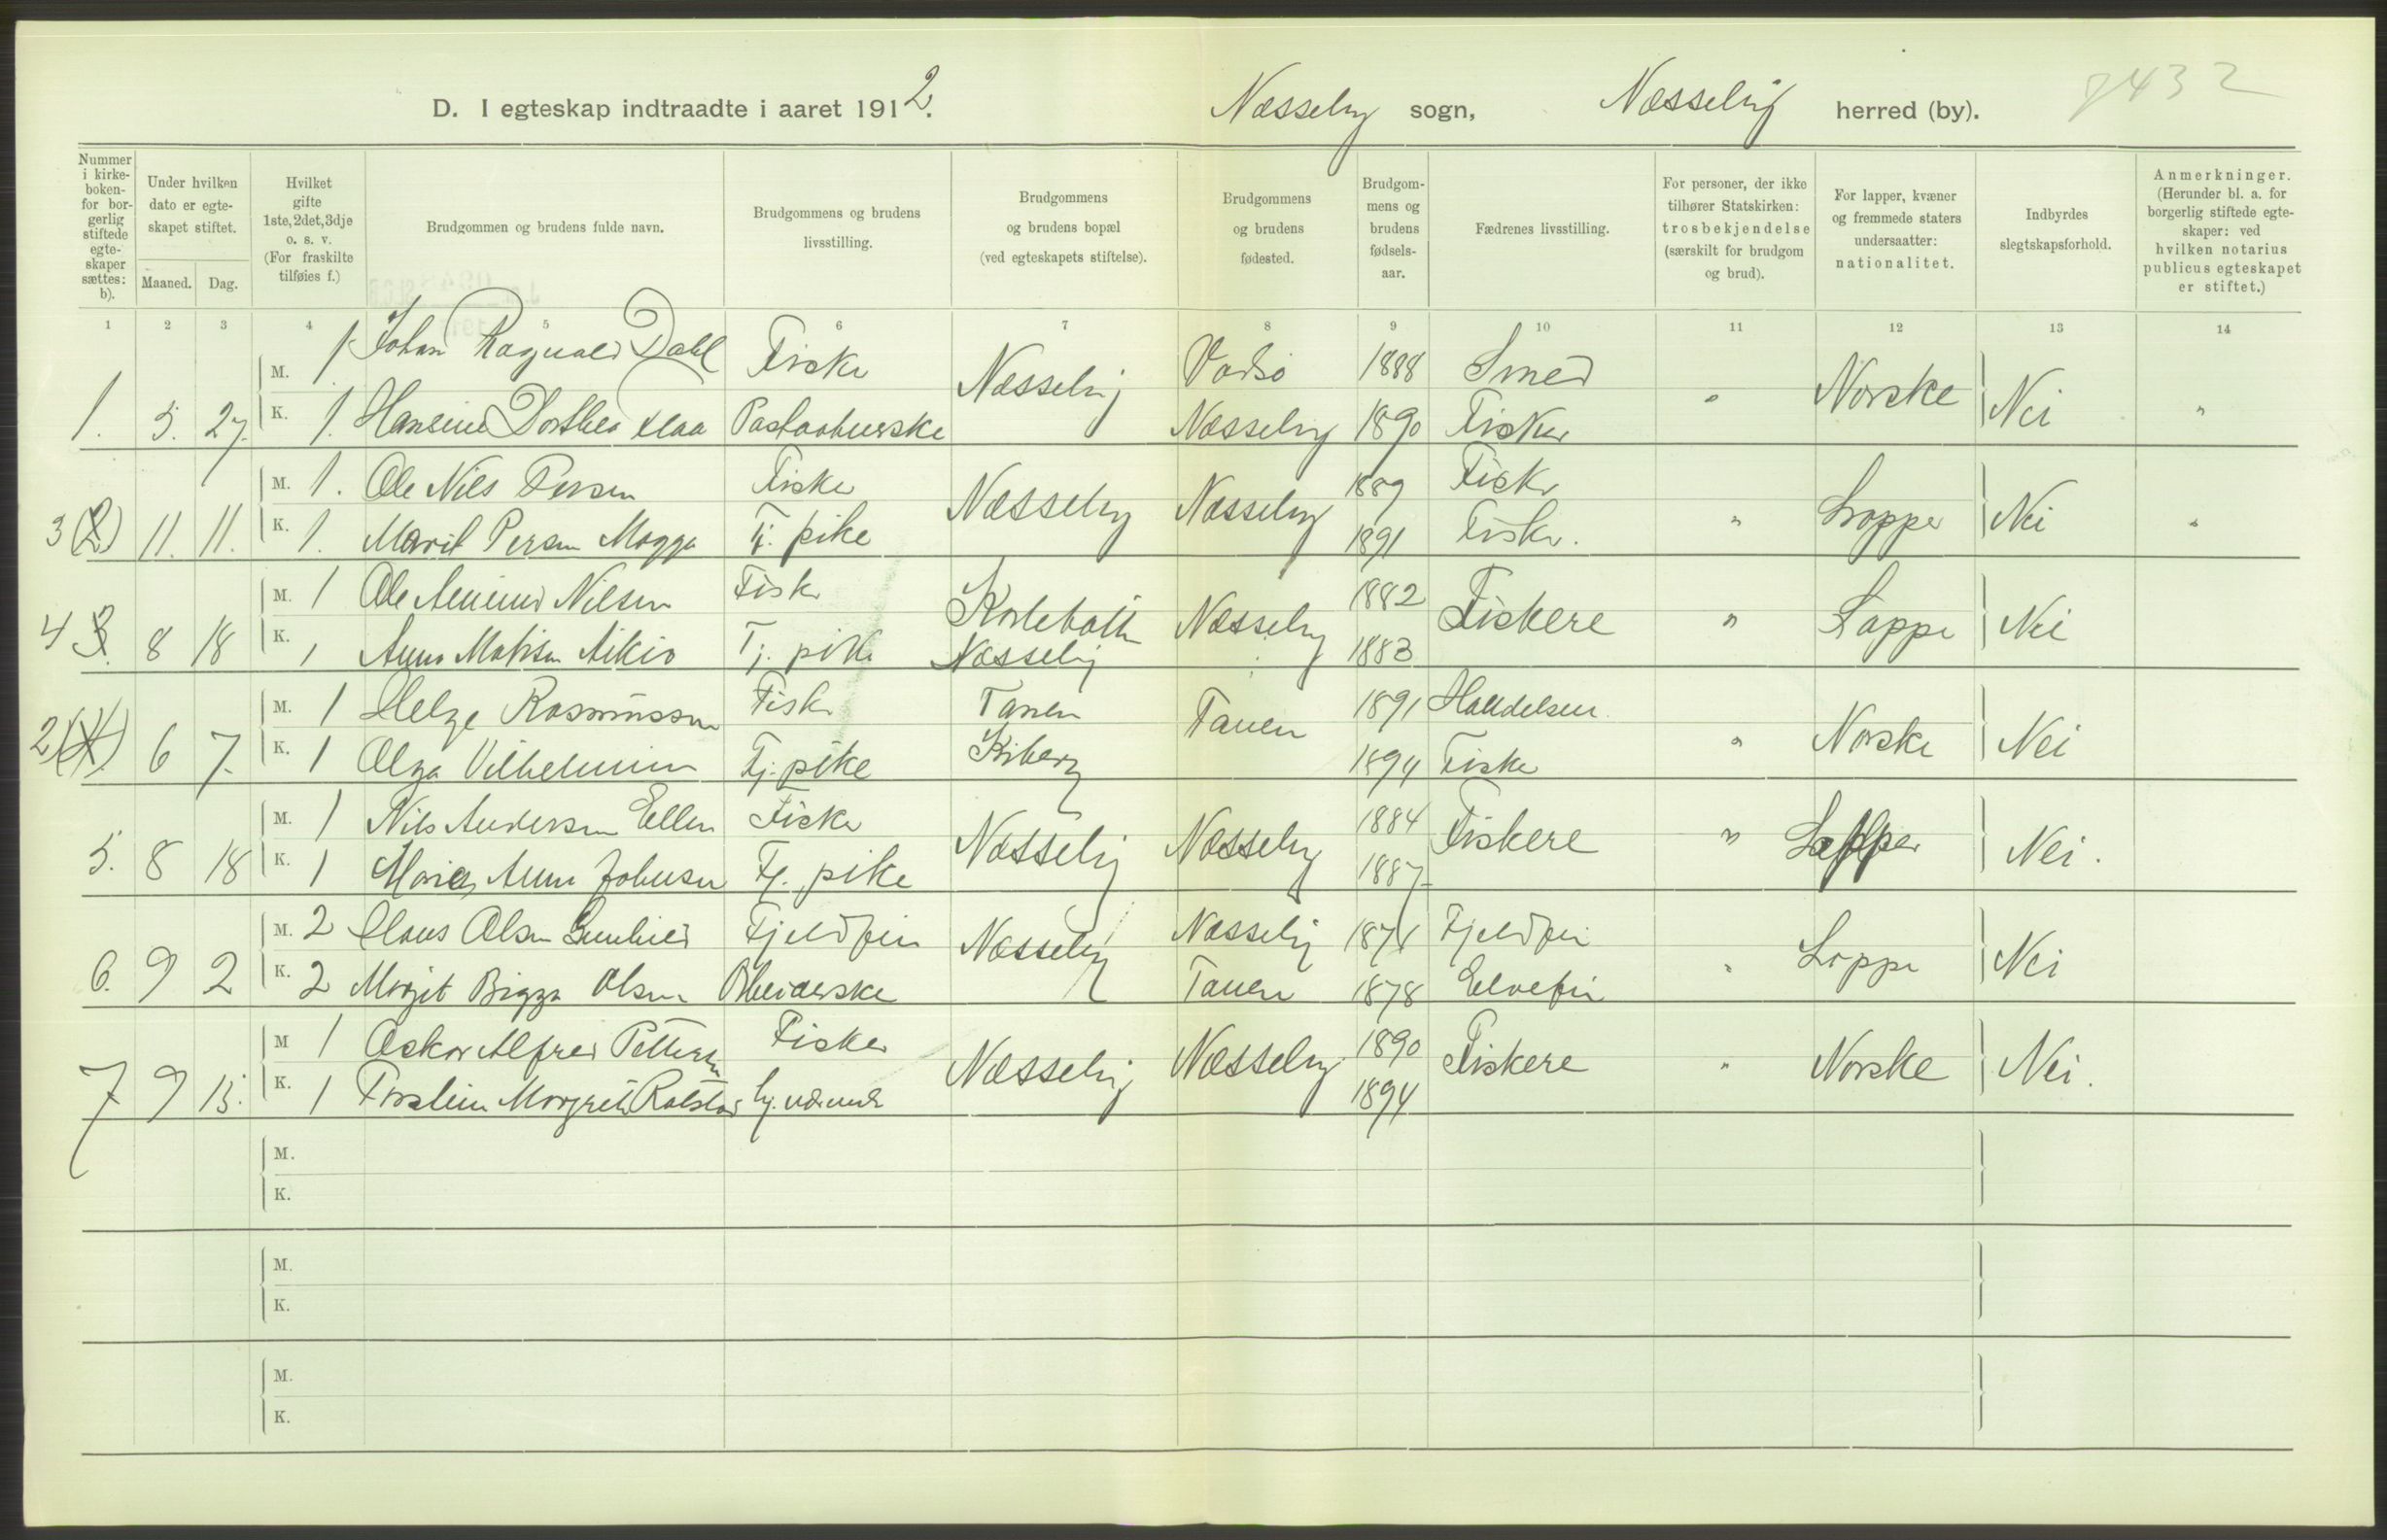 D. I egteskap indtraadte i aaret 1912. Næsseby sogn, Næsseby herred (by). 7432
Nummer i kirke-boken- for bor-gerlig stiftede egte-skaper sættes: b).
Under hvilken dato er egte-skapet stiftet.
Maaned. Dag.
Hvilket gifte 1ste, 2det, 3dje o. s. v. (For fraskilte tilføies f.)
Brudgommen og brudens fulde navn.
Brudgommens og brudens livsstilling.
Brudgommens og brudens bopæl (ved egteskapets stiftelse).
Brudgommens og brudens fødested.
Brudgom-mens og brudens fødsels-aar.
Fædrenes livsstilling.
For personer, der ikke tilhører Statskirken: trosbekjendelse (særskilt for brudgom og brud).
For lapper, kvæner og fremmede staters undersaatter: nationalitet.
Indbyrdes slegtskapsforhold.
Anmerkninger. (Herunder bl. a. for borgerlig stiftede egte-skaper: ved hvilken notarius publicus egteskapet er stiftet.)
1 2 3 4 5 6 7 8 9 10 11 12 13 14
M. 1 Johan Ragnald Dahl Fisker Næsseby Vadsø 1888 Smed " Norske Nei "
1. 5. 27. K. 1. Hansine Dorthea Næsseby 1890 Fisker
M. 1. Ole Nils Persen Fisker Næsseby Næsseby 1889 Fisker " Lapper Nei "
3 (2) 11. 11. K. 1. Marit Persen Magga Tj. pike 1891 Fisker.
M. 1 Ole Amund Nilsen Fisker Karlebotn Næsseby 1882 Fiskere " Lappe Nei
4 3. 8 18 K. 1 Anna Mathisen Aikio Tj. pike Næsseby 1883
M. 1 Helge Rasmussen Fisker Tanen Tanen 1891 " Norske Nei
2 (4). 6 7. K. 1 Olga Vilhelmine Tj. pike Kiberg 1894 Fisker
M. 1 Nils Andersen Ellen Fisker Næsseby Næsseby 1884 Fiskere " Lapper Nei.
5. 8 18 K. 1 Marie Anna Johnsen Tj. pike 1887
M. 2 Olsen Fjeldfin Næsseby Næsseby 1871 Fjeldfin " Lappe Nei
6. 9 2 K. 2 Margit Bigga Olsen Tanen 1878 Elvefin
M 1 Oskar Alfred Pettersen Fisker Næsseby Næsseby 1890 Fiskere " Norske Nei.
7 9 15. K. 1 1894
M.
K.
M.
K.
M.
K.